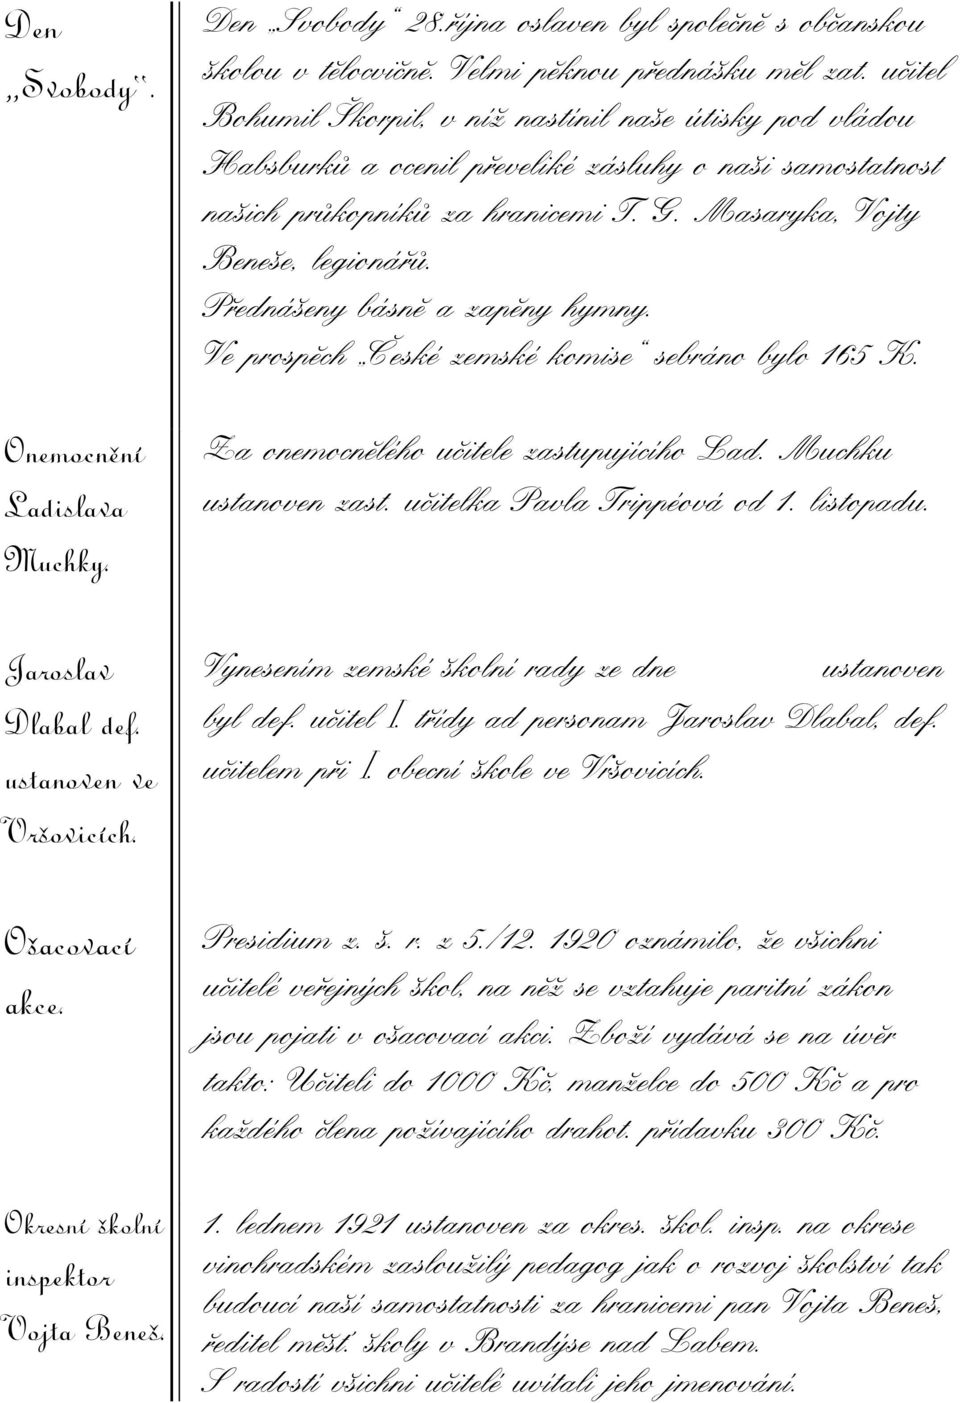 Den
„Svobody“.
Den „Svobody“ 28.října oslaven byl společně s občanskou
školou v tělocvičně. Velmi pěknou přednášku měl zat. učitel
Bohumil Škorpil, v níž nastínil naše útisky pod vládou
Habsburků a ocenil převeliké zásluhy o naši samostatnost
našich průkopníků za hranicemi T. G. Masaryka, Vojty
Beneše, legionářů.
Přednášeny básně a zapěny hymny.
Ve prospěch „České zemské komise“ sebráno bylo 165 K.
Onemocnění
Ladislava
Muchky.
Za onemocnělého učitele zastupujícího Lad. Muchku
ustanoven zast. učitelka Pavla Trippéová od 1. listopadu.
Jaroslav
Dlabal def.
ustanoven ve
Vršovicích.
Vynesením zemské školní rady ze dne ustanoven
byl def. učitel I. třídy ad personam Jaroslav Dlabal, def.
učitelem při I. obecní škole ve Vršovicích.
Ošacovací
akce.
Presidium z. š. r. z 5./12. 1920 oznámilo, že všichni
učitelé veřejných škol, na něž se vztahuje paritní zákon
jsou pojati v ošacovací akci. Zboží vydává se na úvěr
takto: Učiteli do 1000 Kč, manželce do 500 Kč a pro
každého člena požívajícího drahot. přídavku 300 Kč.
Okresní školní
inspektor
Vojta Beneš.
1. lednem 1921 ustanoven za okres. škol. insp. na okrese
vinohradském zasloužilý pedagog jak o rozvoj školství tak
budoucí naší samostatnosti za hranicemi pan Vojta Beneš,
ředitel měšť. školy v Brandýse nad Labem.
S radostí všichni učitelé uvítali jeho jmenování.